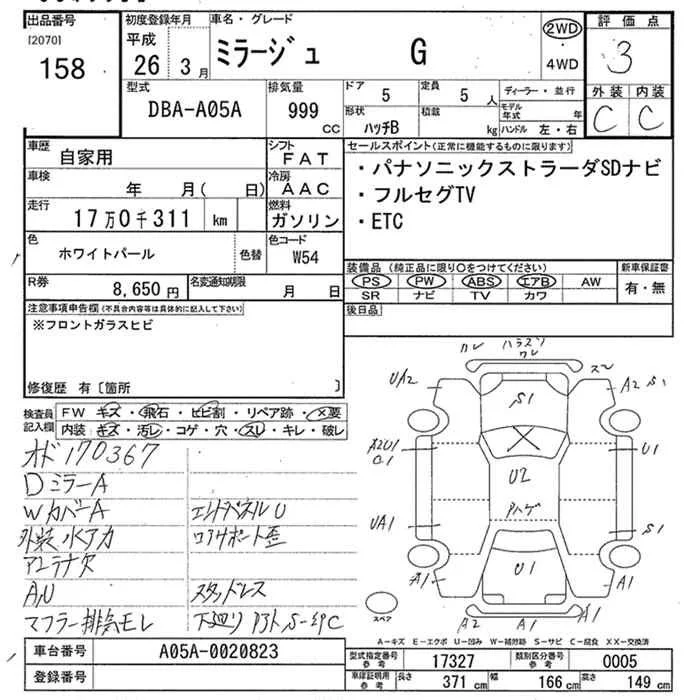 出品番号
[2070]
158
初度登録年月
平成
26 3月
車名・グレード
ミラージュ G
2WD
・
4WD
評価点
3
外装 内装
C C
型式
DBA-A05A
排気量
999
CC
ドア
5
定員
5 人
形状
ハッチB
積載
kg
ディーラー・並行
モデル年式 年
ハンドル 左・右
車歴
自家用
シフト
FAT
車検
年 月( 日)
冷房
AAC
走行
17万0千311 km
燃料
ガソリン
色
ホワイトパール
色替
色コード
W54
R券
8,650 円
名変通知期限
月 日
セールスポイント(正常に機能するものに限ります)
・パナソニックストラーダSDナビ
・フルセグTV
・ETC
装備品 (純正品に限り○をつけてください)
PS PW ABS エアB AW
SR ナビ TV カワ
新車保証書
有・無
後日品
注意事項申告欄(不具合内容等は具体的に記入して下さい)
※フロントガラスヒビ
修復歴 有〔箇所 〕
検査員記入欄
FW キズ・飛石・ヒビ割・リペア跡・×要
内装 キズ・汚レ・コゲ・穴・スレ・キレ・破レ
オド170367
DミラーA
WカバーA
外装水アカ
アンテナ欠
A,U
マフラー排気モレ
エンドパネルU
コアサポート歪
スタッドレス
下廻り
カレ
ワレ
スレ
UA2
A2 S1
S1
A2U1
U1
U2
Pハゲ
UA1
S1
U1
A1
A1
A2
A1
スペア
A-キズ E-エクボ U-凹み W-補修跡 S-サビ C-腐食 XX-交換済
車台番号
A05A-0020823
登録番号
型式指定番号
参考
17327
類別区分番号
参考
0005
車庫証明用
参考
長さ
371 cm
幅
166 cm
高さ
149 cm